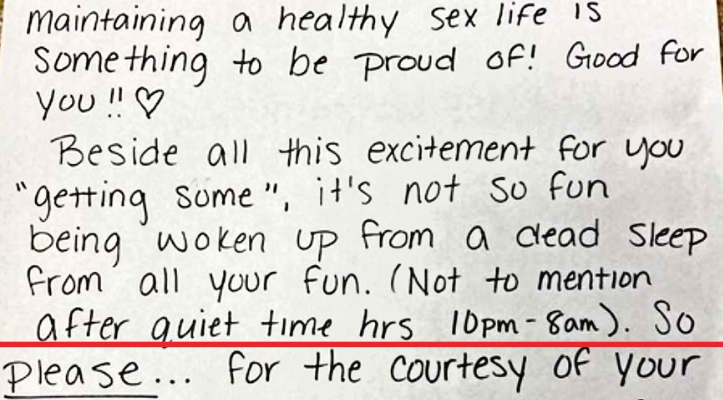 maintaining a healthy sex life is
something to be proud of! Good for
you!! ♡
Beside all this excitement for you
"getting some", it's not so fun
being woken up from a dead sleep
from all your fun. (Not to mention
after quiet time hrs 10pm-8am). So
please... for the courtesy of your